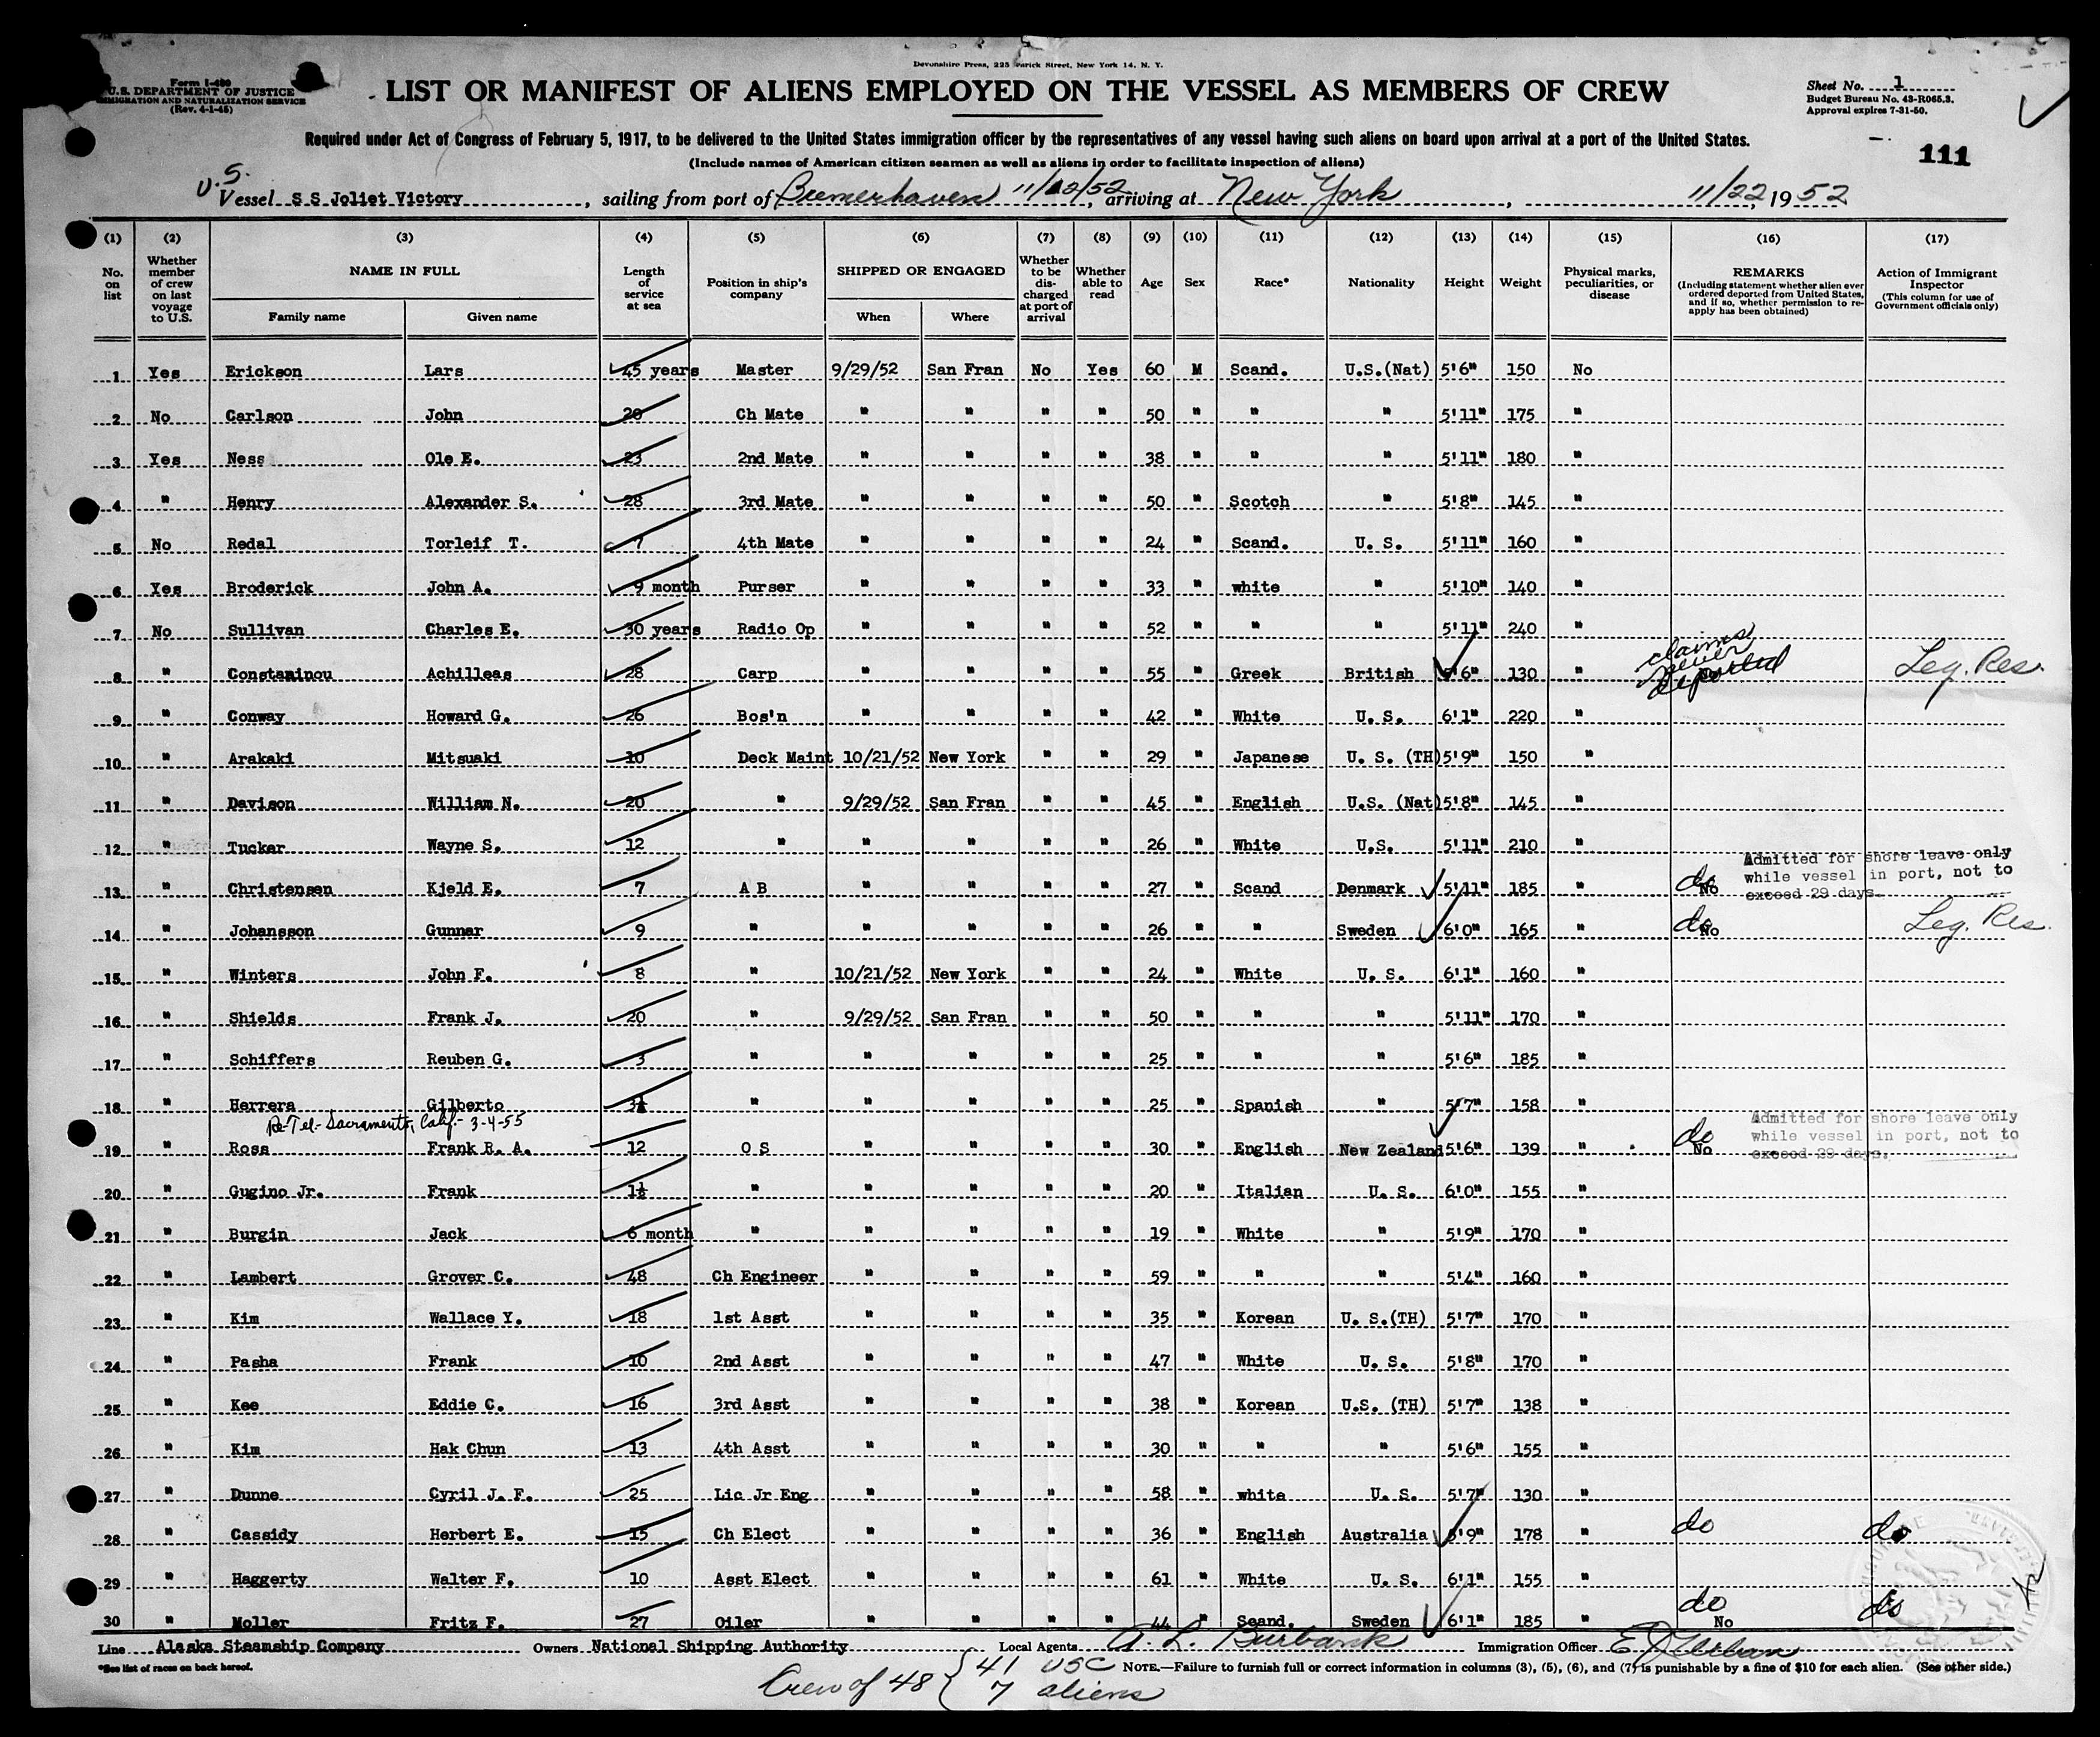 Devonshire Press, 225 Varick Street, New York 14, N. Y.
Form I-480
U.S. DEPARTMENT OF JUSTICE
IMMIGRATION AND NATURALIZATION SERVICE
(Rev. 4-1-45)
LIST OR MANIFEST OF ALIENS EMPLOYED ON THE VESSEL AS MEMBERS OF CREW
Sheet No. 1
Budget Bureau No. 43-R065.3.
Approval expires 7-31-50.
Required under Act of Congress of February 5, 1917, to be delivered to the United States immigration officer by the representatives of any vessel having such aliens on board upon arrival at a port of the United States.
(Include names of American citizen seamen as well as aliens in order to facilitate inspection of aliens)
111
U.S.
Vessel S S Joliet Victory, sailing from port of Bremerhaven 11/12/52, arriving at New York, 11/22, 1952
(1) (2) (3) (4) (5) (6) (7) (8) (9) (10) (11) (12) (13) (14) (15) (16) (17)
No. on list
Whether member of crew on last voyage to U.S.
NAME IN FULL
Family name Given name
Length of service at sea
Position in ship's company
SHIPPED OR ENGAGED
When Where
Whether to be discharged at port of arrival
Whether able to read
Age Sex Race* Nationality Height Weight
Physical marks, peculiarities, or disease
REMARKS
(Including statement whether alien ever ordered deported from United States, and if so, whether permission to reapply has been obtained)
Action of Immigrant Inspector
(This column for use of Government officials only)
1 Yes Erickson Lars 45 years Master 9/29/52 San Fran No Yes 60 M Scand. U.S.(Nat) 5'6" 150 No
2 No Carlson John 20 Ch Mate " " " " 50 " " " 5'11" 175 "
3 Yes Ness Ole E. 23 2nd Mate " " " " 38 " " " 5'11" 180 "
4 " Henry Alexander S. 28 3rd Mate " " " " 50 " Scotch " 5'8" 145 "
5 No Redal Torleif T. 7 4th Mate " " " " 24 " Scand. U. S. 5'11" 160 "
6 Yes Broderick John A. 9 month Purser " " " " 33 " white " 5'10" 140 "
7 No Sullivan Charles E. 30 years Radio Op " " " " 52 " " " 5'11" 240 "
8 " Constaninou Achilleas 28 Carp " " " " 55 " Greek British 5'6" 130 " claims never deported Leg. Res.
9 " Conway Howard G. 26 Bos'n " " " " 42 " White U. S. 6'1" 220 "
10 " Arakaki Mitsuaki 10 Deck Maint 10/21/52 New York " " 29 " Japanese U. S. (TH) 5'9" 150 "
11 " Davison William N. 20 " 9/29/52 San Fran " " 45 " English U.S. (Nat) 5'8" 145 "
12 " Tucker Wayne S. 12 " " " " " 26 " White U.S. 5'11" 210 "
13 " Christensen Kjeld E. 7 A B " " " " 27 " Scand Denmark 5'11" 185 " do No Admitted for shore leave only while vessel in port, not to exceed 29 days.
14 " Johansson Gunnar 9 " " " " " 26 " " Sweden 6'0" 165 " do No Leg. Res.
15 " Winters John F. 8 " 10/21/52 New York " " 24 " White U. S. 6'1" 160 "
16 " Shields Frank J. 20 " 9/29/52 San Fran " " 50 " " " 5'11" 170 "
17 " Schiffers Reuben G. 3 " " " " " 25 " " " 5'6" 185 "
18 " Herrera Gilberto 3½ " " " " " 25 " Spanish " 5'7" 158 "
Re-Tel-Sacramento, Calif.- 3-4-55
19 " Ross Frank R. A. 12 O S " " " " 30 " English New Zealand 5'6" 139 " do No Admitted for shore leave only while vessel in port, not to exceed 29 days.
20 " Gugino Jr. Frank 1½ " " " " " 20 " Italian U. S. 6'0" 155 "
21 " Burgin Jack 6 month " " " " " 19 " White " 5'9" 170 "
22 " Lambert Grover C. 48 Ch Engineer " " " " 59 " " " 5'4" 160 "
23 " Kim Wallace Y. 18 1st Asst " " " " 35 " Korean U. S.(TH) 5'7" 170 "
24 " Pasha Frank 10 2nd Asst " " " " 47 " White U. S. 5'8" 170 "
25 " Kee Eddie C. 16 3rd Asst " " " " 38 " Korean U.S. (TH) 5'7" 138 "
26 " Kim Hak Chun 13 4th Asst " " " " 30 " " " 5'6" 155 "
27 " Dunne Cyril J. F. 25 Lic Jr Eng " " " " 58 " white U. S. 5'7" 130 "
28 " Cassidy Herbert E. 15 Ch Elect " " " " 36 " English Australia 5'9" 178 " do do
29 " Haggerty Walter F. 10 Asst Elect " " " " 61 " White U. S. 6'1" 155 "
30 " Moller Fritz F. 27 Oiler " " " " 44 " Scand. Sweden 6'1" 185 " do No do
Line Alaska Steamship Company Owners National Shipping Authority Local Agents A. L. Burbank Immigration Officer
*See list of races on back hereof.
NOTE.—Failure to furnish full or correct information in columns (3), (5), (6), and (7) is punishable by a fine of $10 for each alien. (See other side.)
Crew of 48 { 41 USC
7 aliens